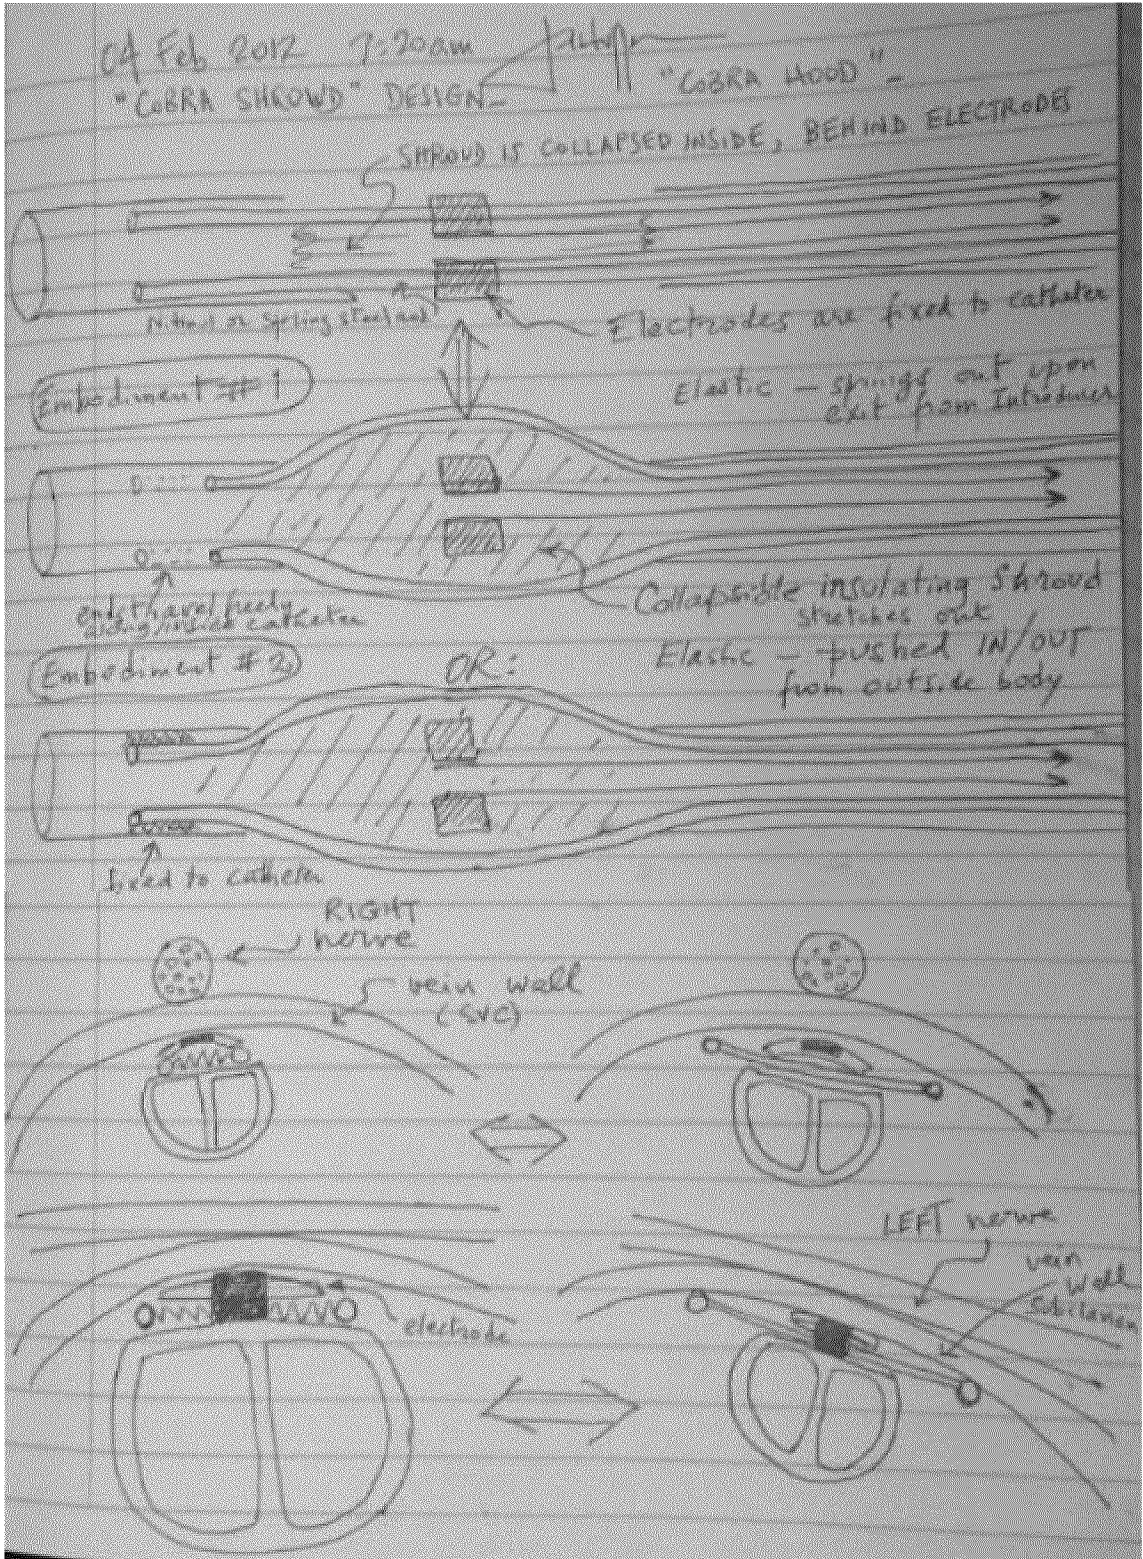 04 Feb 2012 7:20am
"COBRA SHROWD" DESIGN- "COBRA HOOD"-
SHROUD IS COLLAPSED INSIDE, BEHIND ELECTRODES
Nitinol or Spring steel rod
Electrodes are fixed to catheter
Embodiment #1
Elastic - springs out upon
exit from Introducer
ends travel freely
along/inside catheter
Collapsible insulating Shroud
stretches out
Embodiment #2
OR:
Elastic - pushed IN/OUT
from outside body
fixed to catheter
RIGHT
nerve
vein wall
(SVC)
LEFT nerve
vein
Wall
electrode